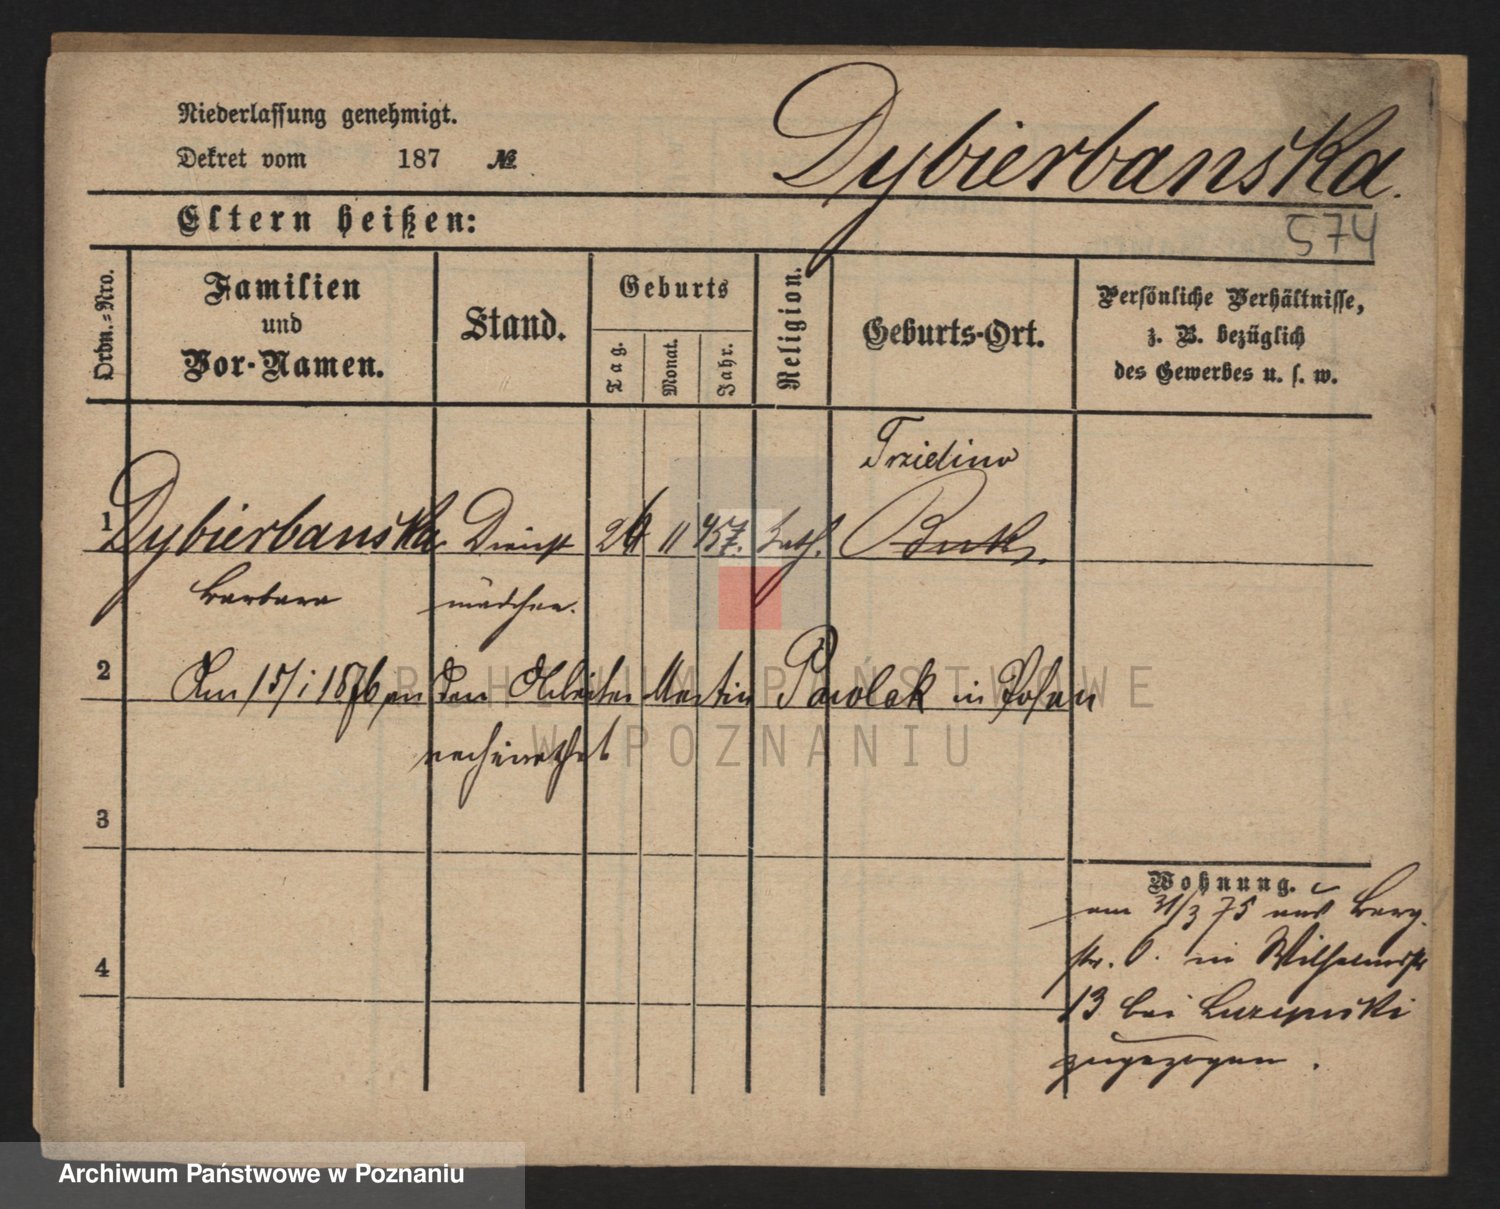 Niederlassung genehmigt.
Dekret vom 187 №
Dybierbanska.
574
Eltern heißen:
Ordn.-Nro.
Familien
und
Vor-Namen.
Stand.
Geburts
Tag.
Monat.
Jahr.
Religion.
Geburts-Ort.
Persönliche Verhältnisse,
z. B. bezüglich
des Gewerbes u. s. w.
Trzielino
1 Dybierbanska Dienst 26 11 457. kath. Buk.
Barbara mädchen.
2 Am 15/1 1876 an den Arbeiter Martin Pawlak in Posen
verheirathet
3
4
Wohnung.
am 31/3 75 aus Berg
str. 6. in Wilhelmsstr
13 bei
zugezogen.
ARCHIWUM PAŃSTWOWE
W POZNANIU
Archiwum Państwowe w Poznaniu